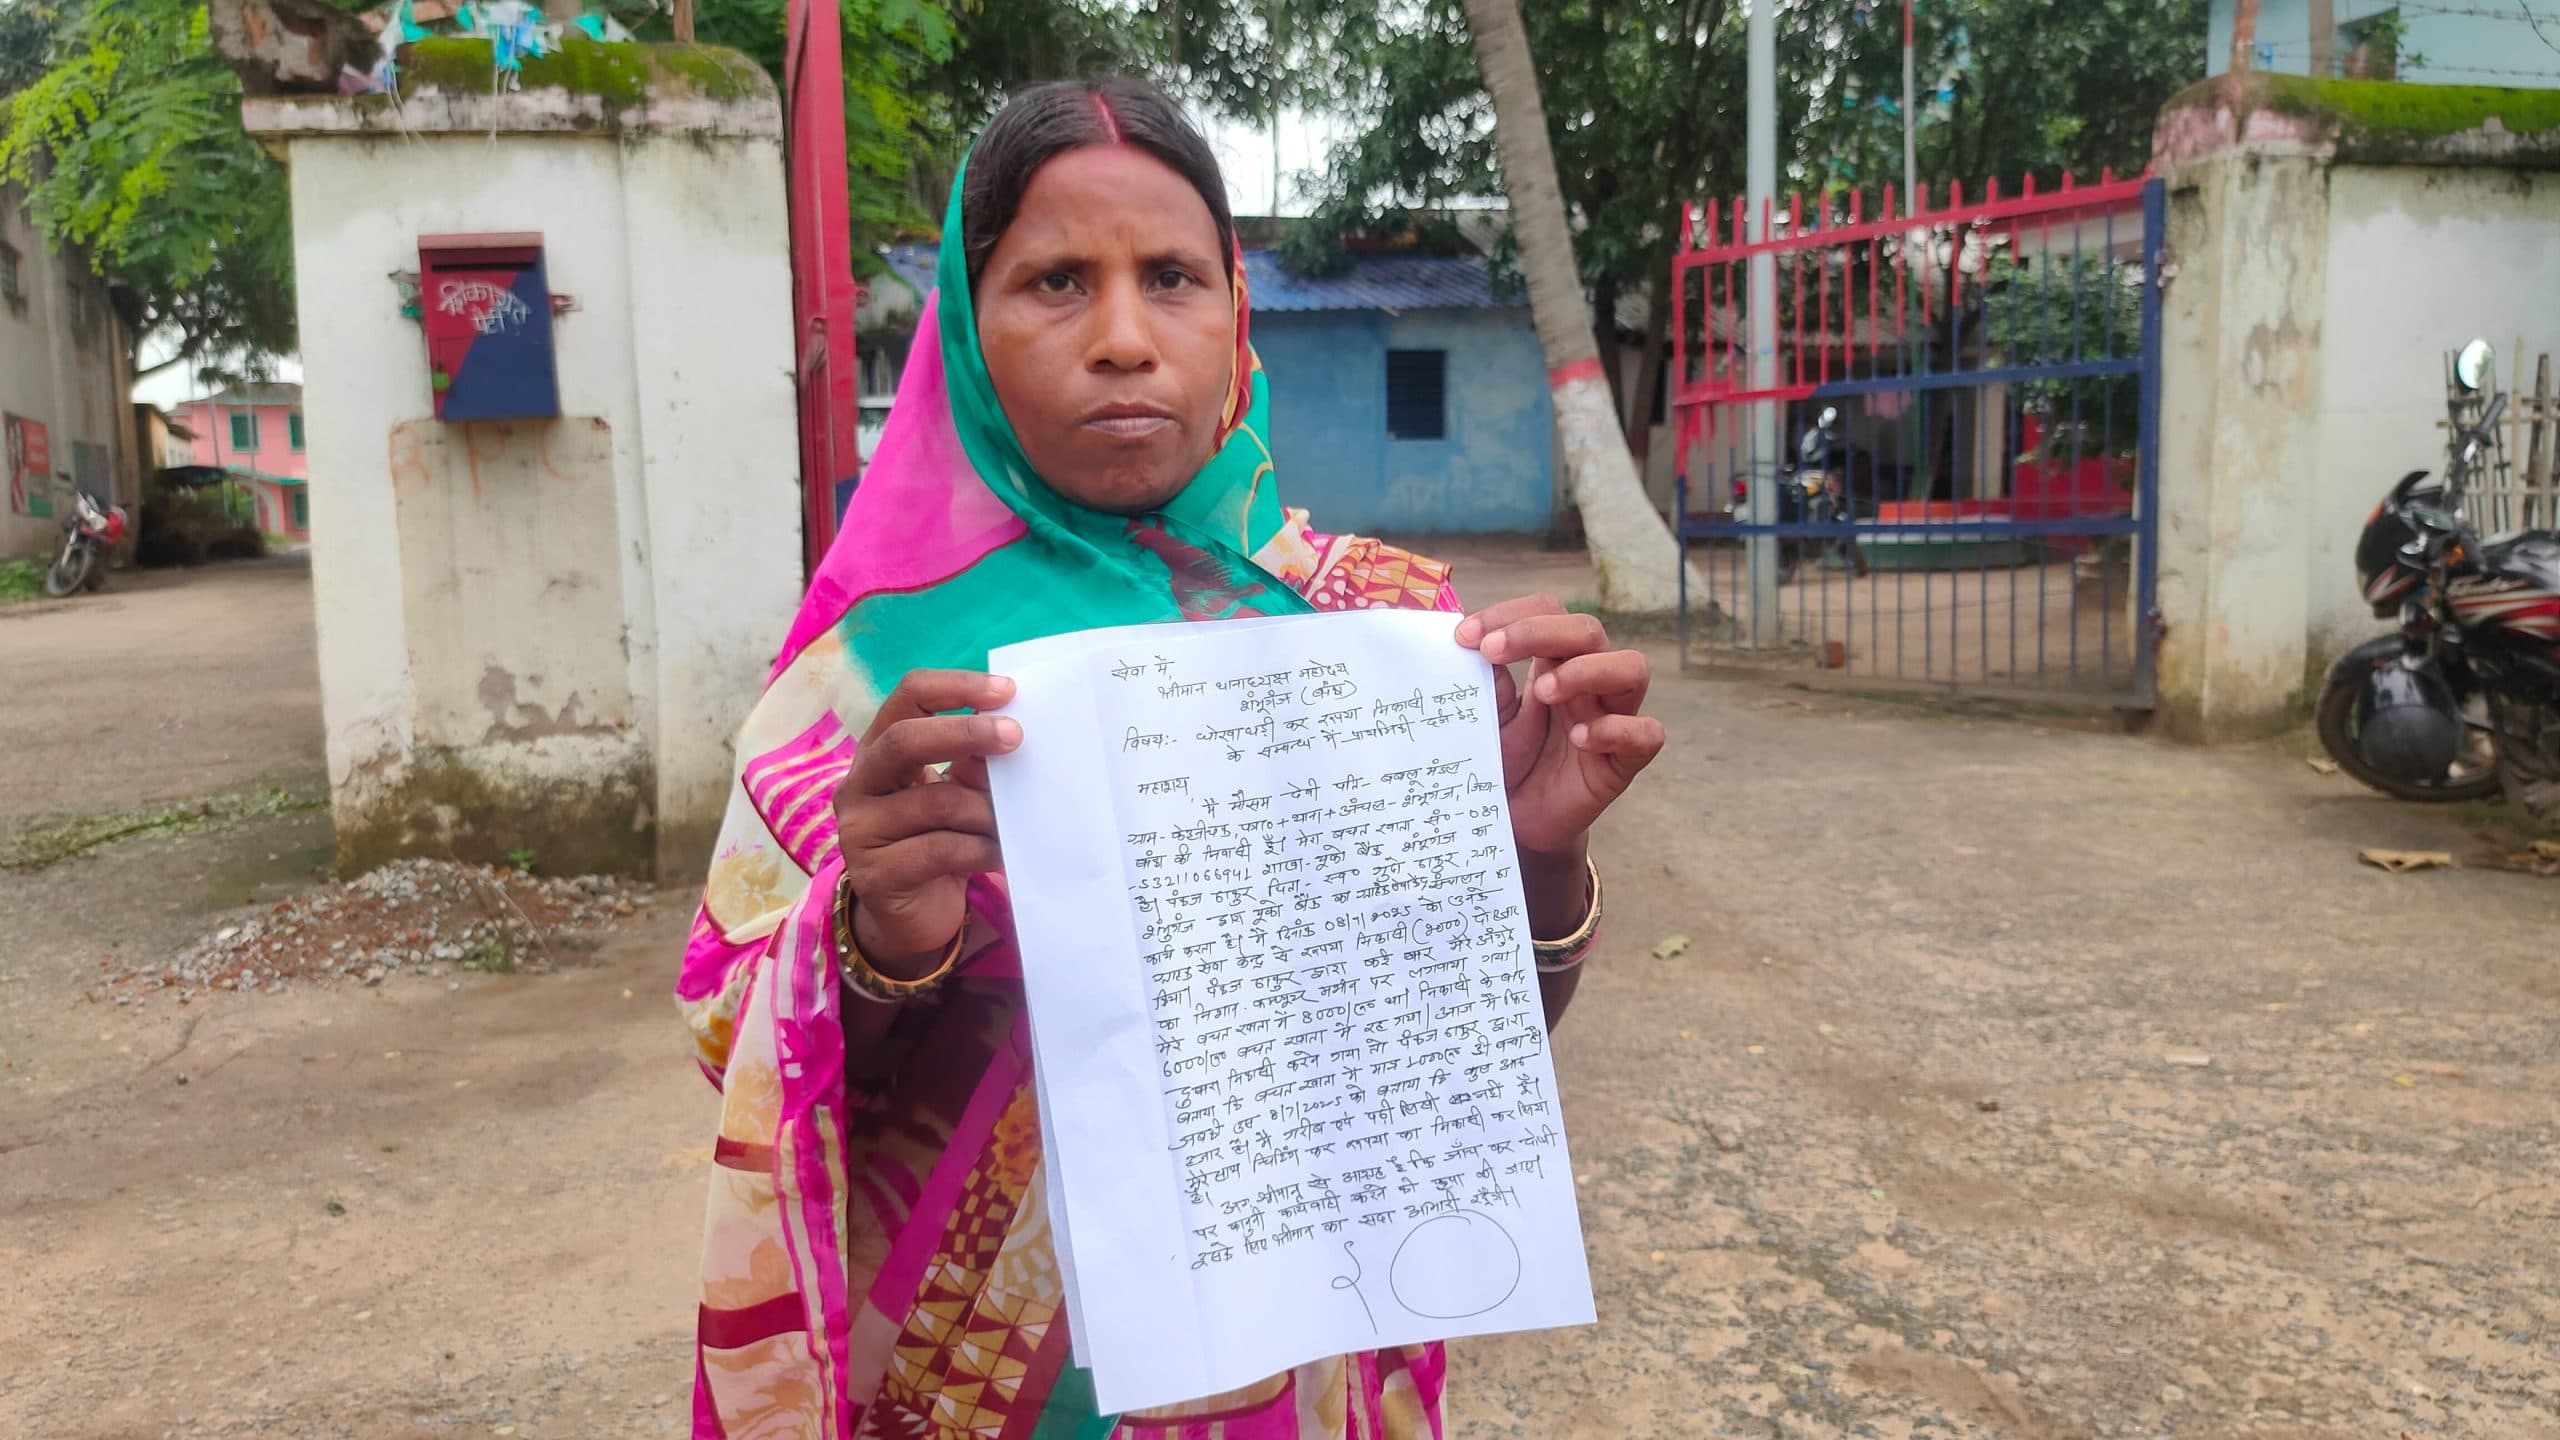 शिकायत
पेटी
B.P.C
सेवा में,
श्रीमान थानाध्यक्ष महोदय
शंभूगंज (बांका)
विषय:- धोखाधड़ी कर रूपया निकासी करलेने
के सम्बन्ध में प्राथमिकी दर्ज हेतु
महाशय,
मैं मौसम देवी पति- बबलू मंडल
ग्राम- पो०+थाना+अंचल- शंभूगंज, जिला-
बांका की निवासी हूँ। मेरा बचत खाता सं०- 089
-53211066941 शाखा- यूको बैंक शंभूगंज का
है। पंकज ठाकुर पिता- स्व० ठाकुर, ग्राम-
शंभुगंज द्वारा यूको बैंक का संचालन का
कार्य करता है। मैं दिनांक 08/7/2025 को उनके
ग्राहक सेवा केन्द्र से रूपया निकासी (2000) दो हजार
किया। पंकज ठाकुर द्वारा कई बार मेरे अँगुठे
का निशान कम्प्यूटर मशीन पर लगवाया गया।
मेरे बचत खाता में 8000/रू० था। निकासी के बाद
6000/रू० बचत खाता में रह गया। आज मैं फिर
दुबारा निकासी करने गया तो पंकज ठाकुर द्वारा
बताया कि बचत खाता में मात्र 1000/रू० ही बचा है।
जबकी 8/7/2025 को बताया कि कुल आठ
हजार है। मैं गरीब एवं पढ़ी लिखी नहीं हूँ।
मेरे साथ चिटिंग कर रूपया का निकासी कर लिया
है।
अतः श्रीमान् से आग्रह है कि जाँच कर दोषी
पर कानुनी कार्यवाही करने की कृपा की जाए।
इसके लिए श्रीमान का सदा आभारी रहूँगी।